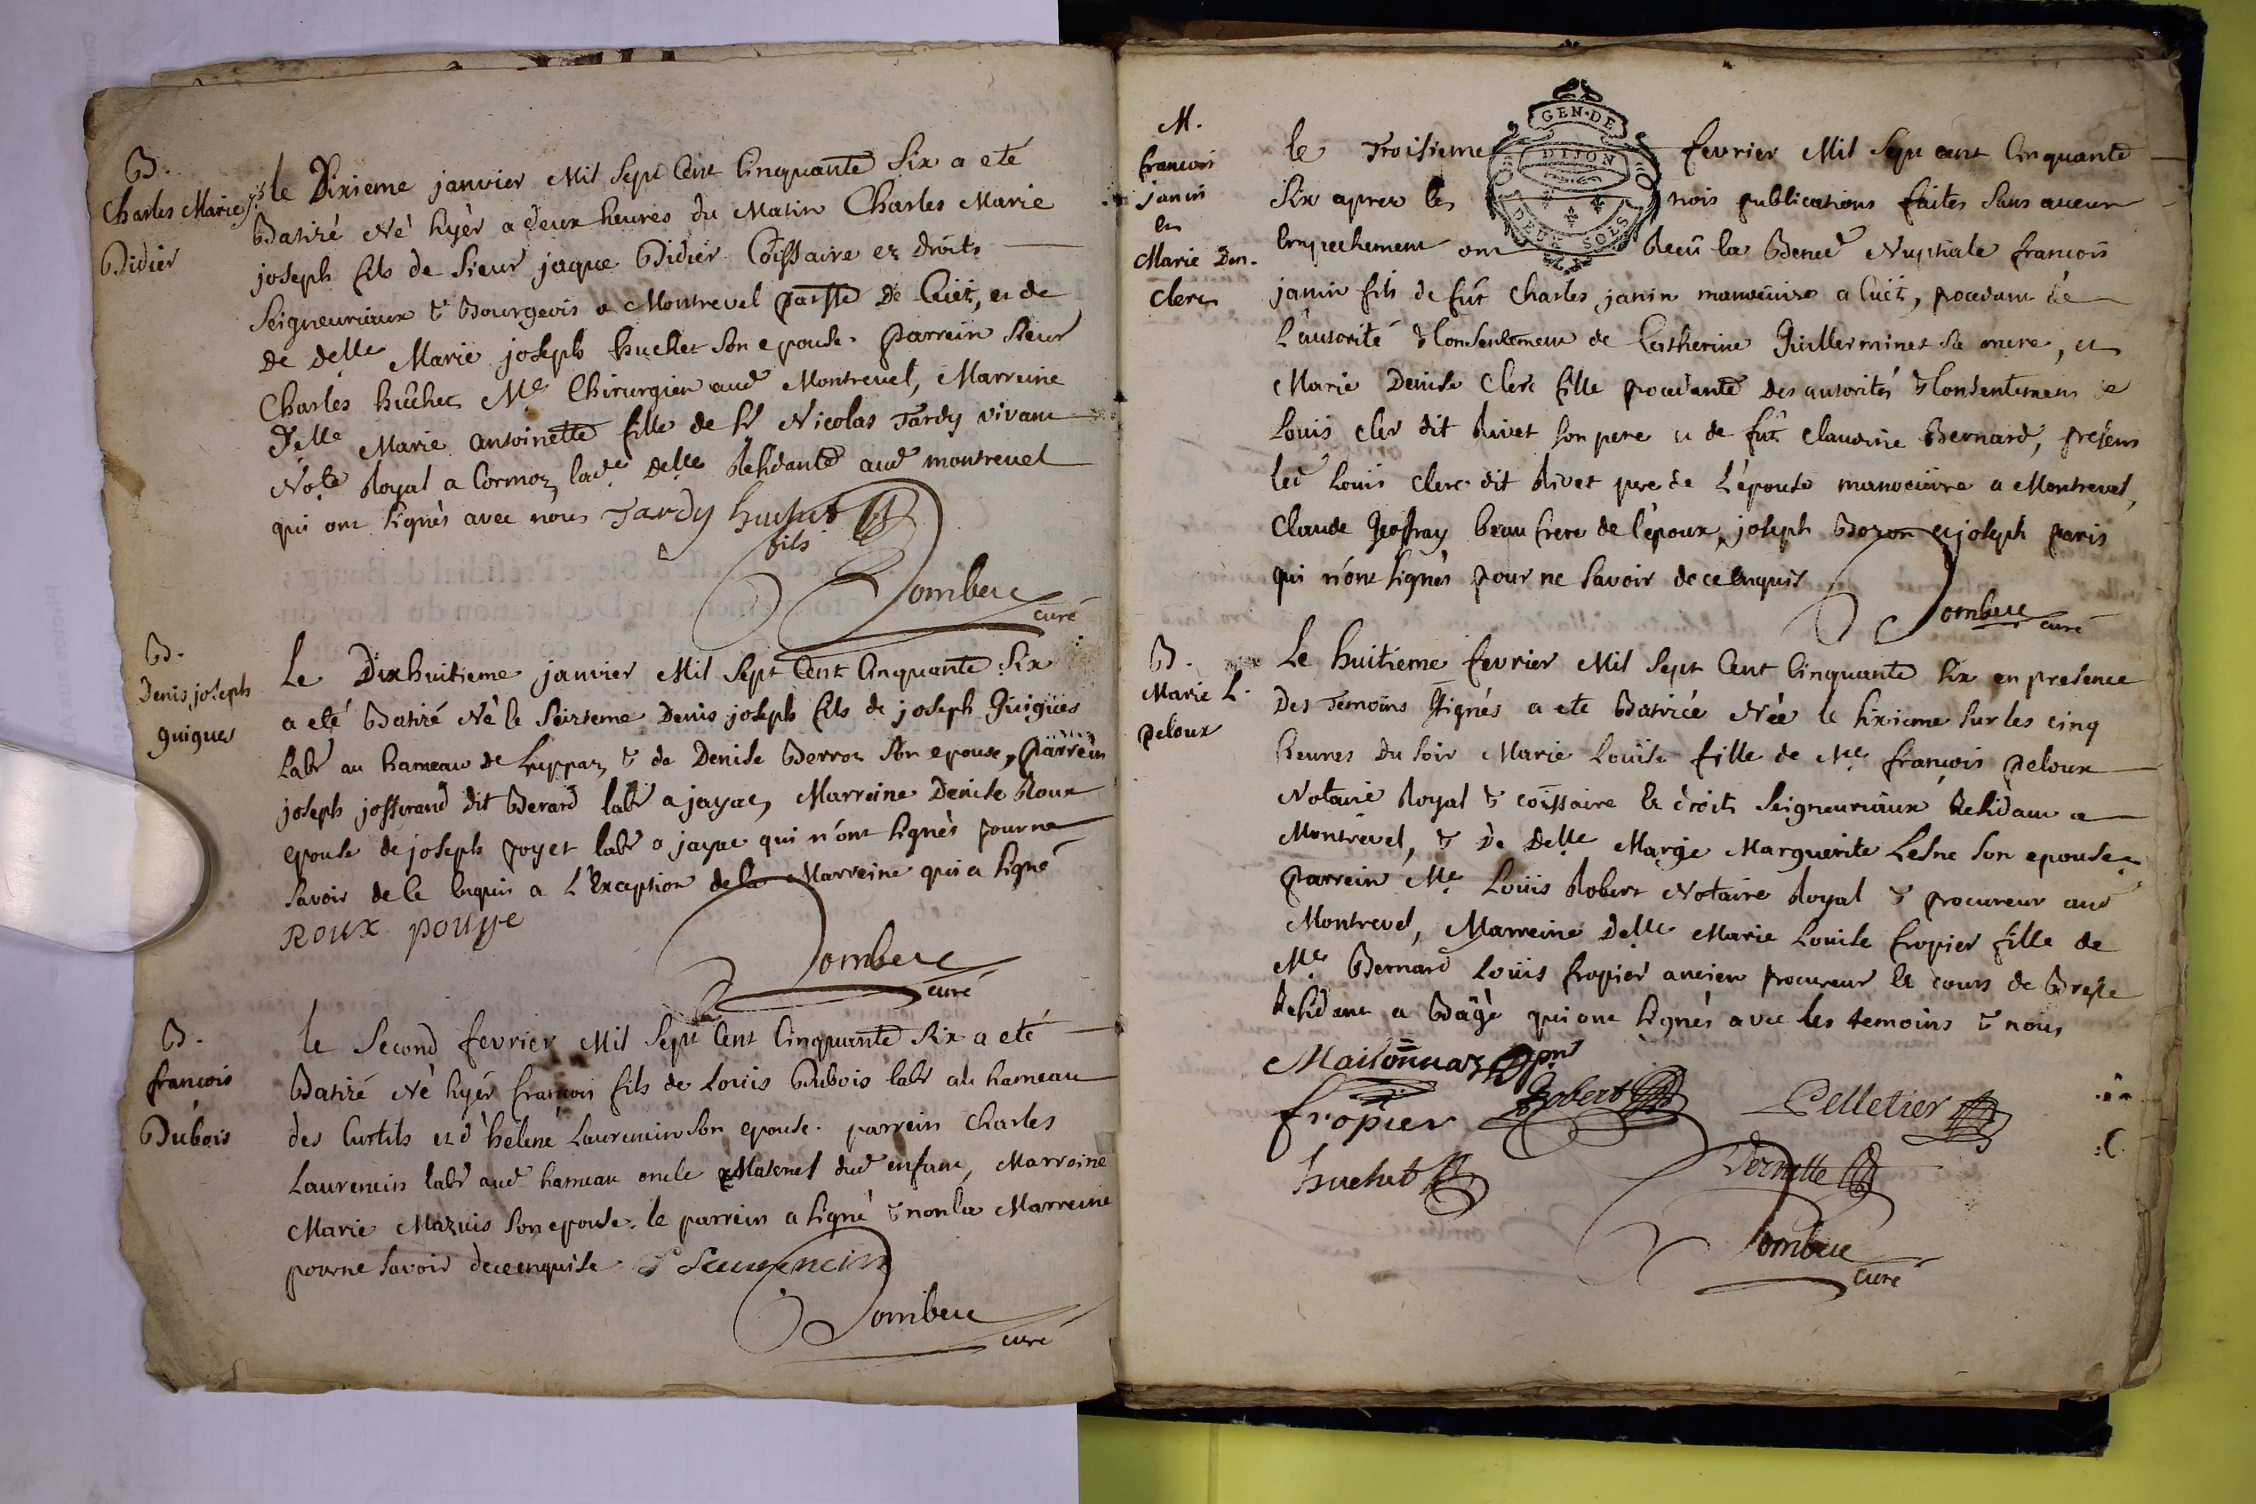 B.
Charles Marie Js
Didier
le Dixieme janvier Mil Sept Cent Cinquante Six a eté
Batizé Né hyèr a deux heures du Matin Charles Marie
joseph fils de Sieur jaque Didier Coissaire ez droits
Seigneuriaux & Bourgeois a Montrevel parsse De Cuët, et de
De Delle Marie joseph huchet son epouse. parrein Sieur
Charles hûchet Me Chirurgien aud Montrevel, Marreine
Delle Marie antoinette fille de Sr Nicolas Tardy vivant
Note Royal a Cormoz, lade Delle Residante aud montrevel
qui ont signès avec nous Tardy huchet
fils
Dombeÿ
curé
B.
Denis joseph
guigues
Le Dixhuitieme janvier Mil Sept Cent Cinquante Six
a eté Batizé Nè le Seizieme Denis joseph fils de joseph Guigues
Labr au hameau de Luppaz & de Denise Berroz son epouse, parrein
joseph josserand dit Berard labr a jayac, Marreine Denise Roux
epouse de joseph poyet labr a jayac qui n'ont signès pour ne
savoir de ce Enquis a L'Exception de la Marreine qui a signé
ROUX
curé
B.
francois
Dubois
le Second fevrier Mil Sept Cent Cinquante Six a eté
Batizé Né hyér francois fils de Loüis Dubois labr au hameau
des Curtils et d'helene Laurencin son epouse. parrein Charles
Laurencin labr aud hameau oncle Maternel dud enfant, Marreine
Marie Mazuis son epouse. le parrein a signé & non la Marreine
pour ne savoir de ce enquise C Laurencin
curé
M.
francois
janin
et
Marie Den.
Clerc
GEN. DE
DIJON
DEUX SOLS
le Troisieme fevrier Mil Sept cent Cinquante
Six aprez les trois publications faites sans aucun
Empechement ont Reçu la Bened Nuptiale francois
janin fils de fût Charles janin manoeuvre a Cuët, procedant de
L'autorité & Consentement de Catherine Guillerminet sa mere, et
Marie Denise Clerc fille procedante des autorités & Consentement de
Louis Cler dit Rivet son pere et de fût Claudine Bernard, presens
led Louïs Clerc dit Rivet pere de L'épouse manoeuvre a Montrevel,
Claude Geoffray beau frere de l'époux, joseph Bozon et joseph paris
qui n'ont signès pour ne Savoir de ce Enquis
curé
B.
Marie L.
peloux
Le huitieme fevrier Mil Sept Cent Cinquante Six en presence
Des Temoins Signés a ete Batizée Née le Sixieme sur les cinq
heures Du Soir Marie Louïse fille de Me françois peloux
Notaire Royal & coissaire Ez droits Seigneuriaux Residant a
Montrevel, & De Delle Marie Marguerite Lesne Son epouse.
parrein Me Loüis Robert Notaire Royal & procureur aud
Montrevel, Marreine Delle Marie Louise fropier fille de
Me Bernard Loüis fropier ancien procureur Ez cours de Bresse
Residant a Bâgè qui ont signès avec les temoins & nous
fropier Robert Pelletier
huchet
curé